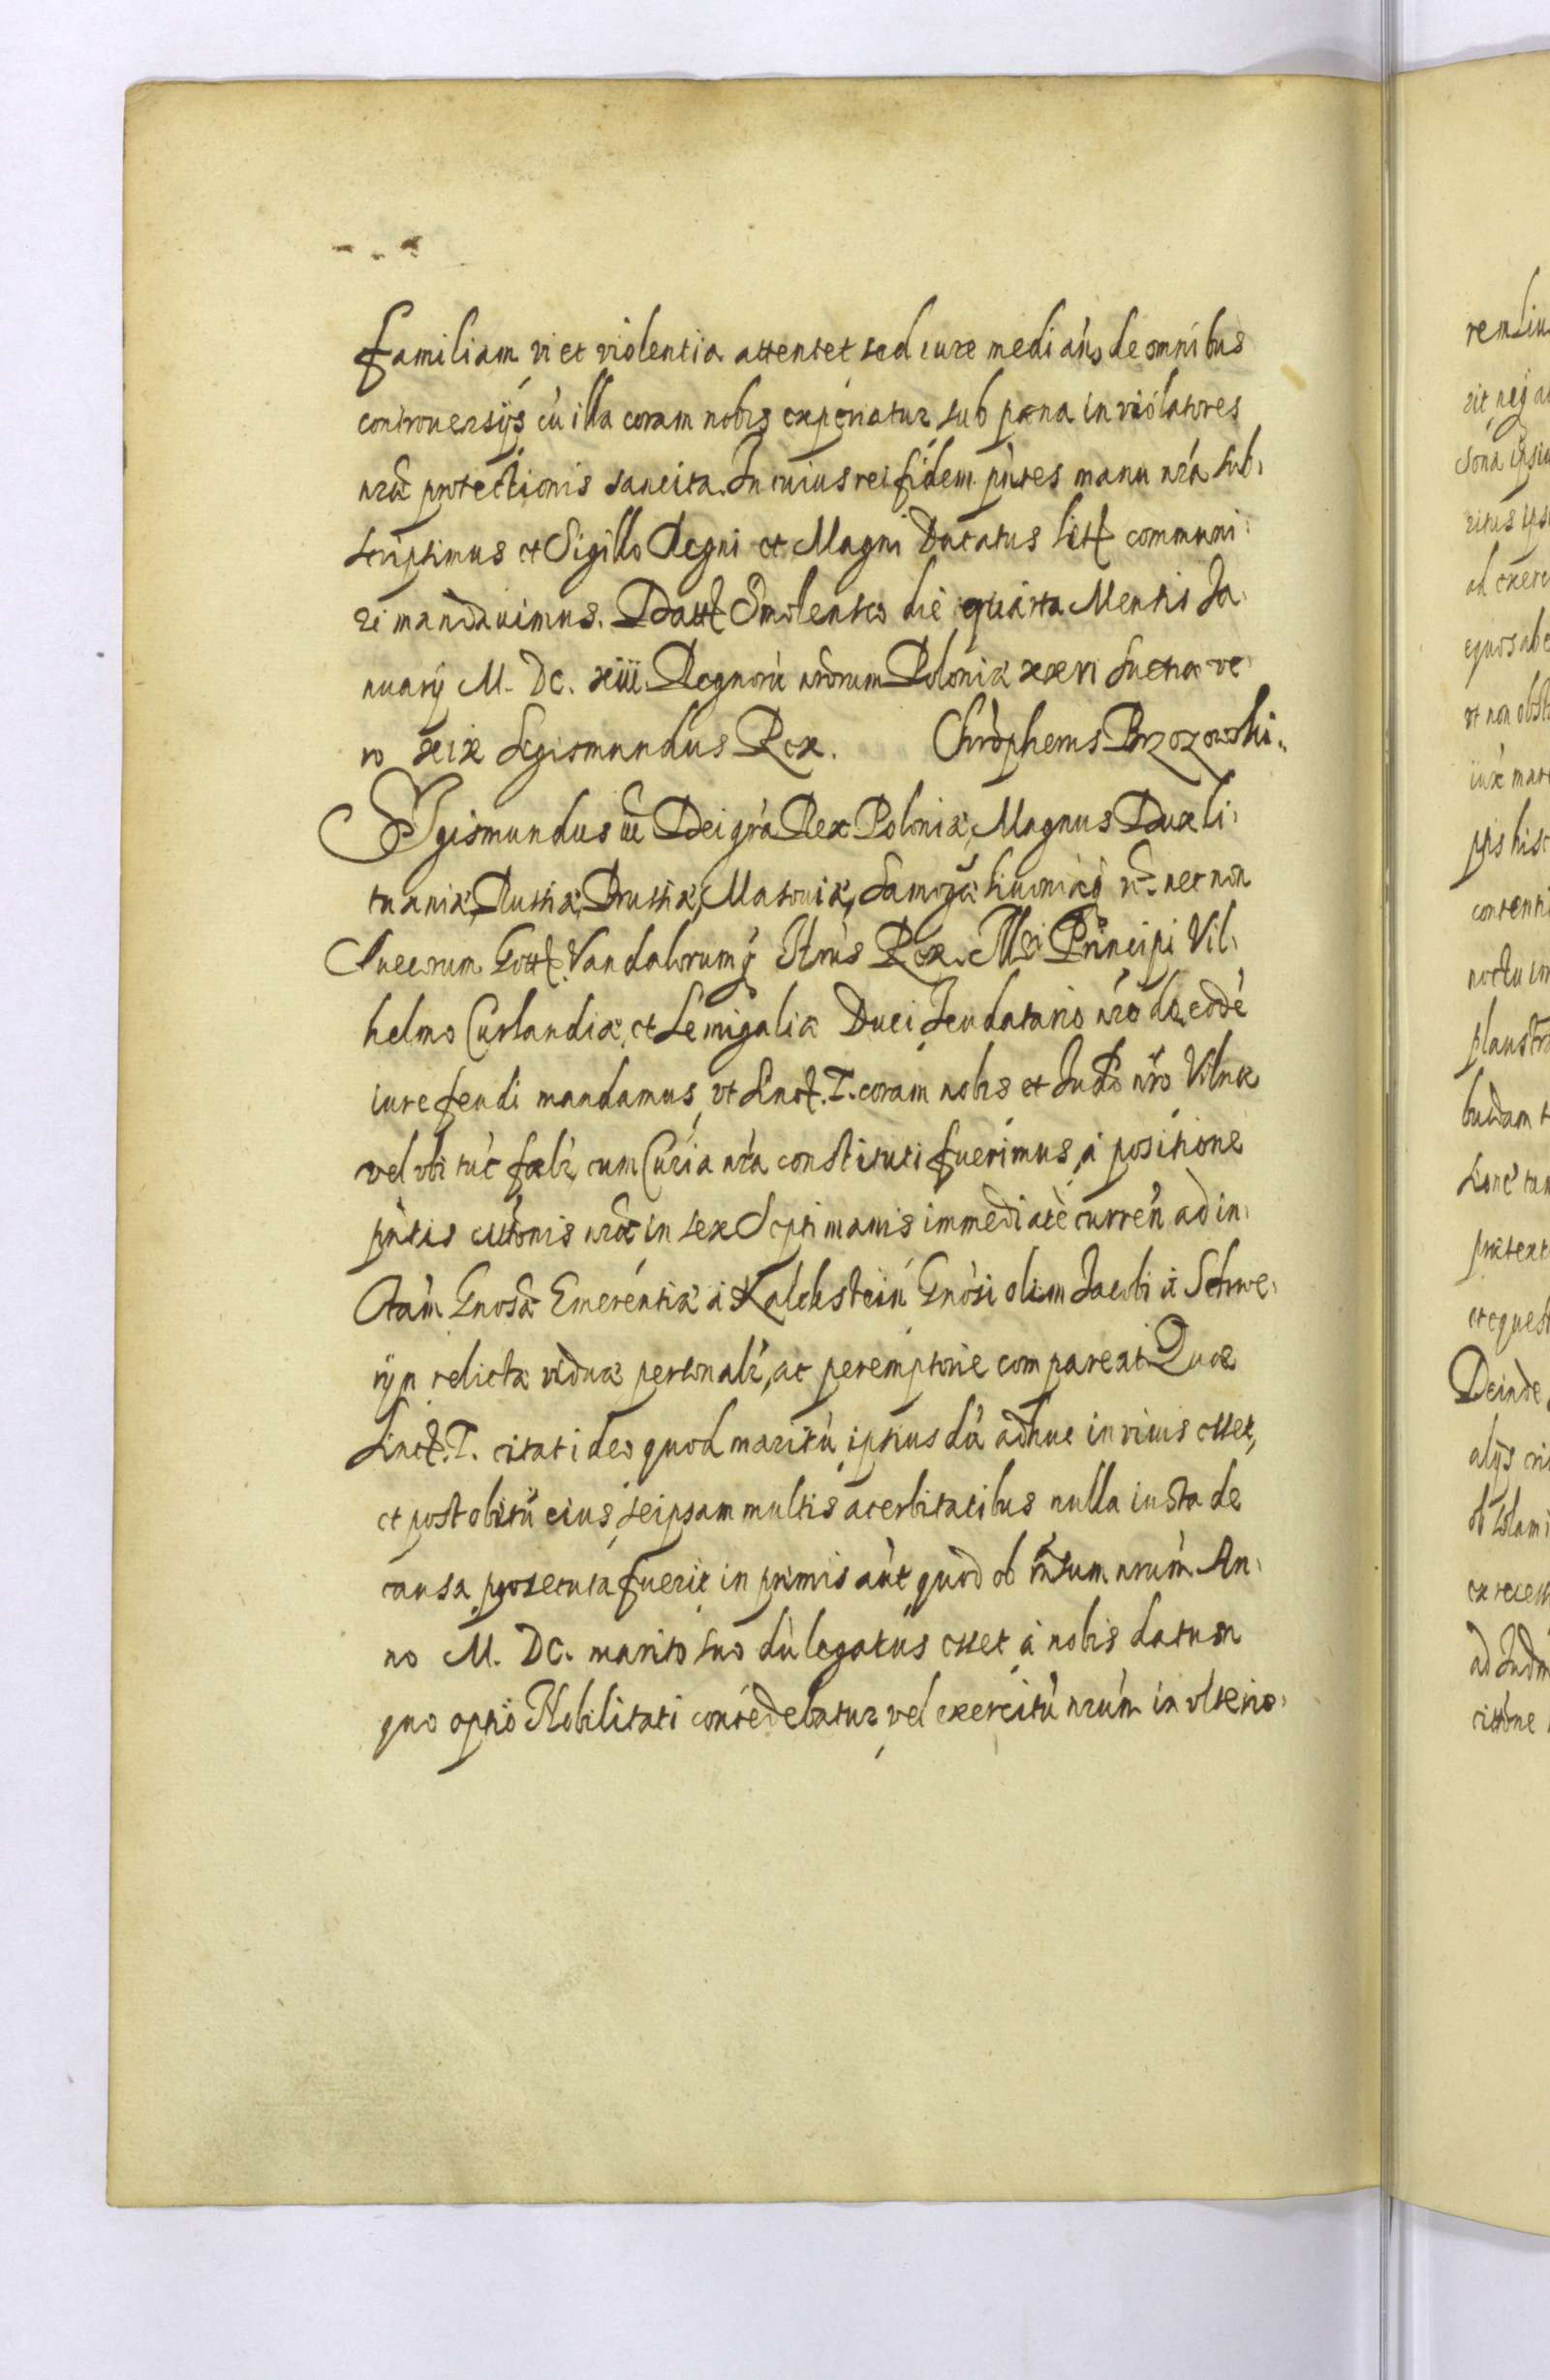 familiam vi et violentia attentet sed iure mediãn, de omnibus
controuersijs cũ illa coram nobis experiatur, sub pæna in violatores
nræ protectionis sancita. In cuius rei fidem pñtes manu nrá sub,
scripsimus et Sigillo Regni et Magni Ducatus Litt communi:
ri mandauimus. Datt Smolensco die quarta Mensis Ja,
nuarij M. DC. xiii. Regnorũ nrõrum Poloniæ xxvi Sueciæ ve,
ro xix Segismundus Rex. Chrõpherus Brzozowski.
Sigismundus iii Dei grã Rex Poloniæ, Magnus Dux Li,
tuaniæ, Russiæ, Prussiæ, Masouiæ, Samogã Liuoniæq nec non
Suecorum Gott. Vandalorumq Hrus Rex. Principi Vil,
helmo Curlandiæ, et Semigaliæ Duci Feudatario nró de eodẽ
iure feudi mandamus, vt Sinct. T. coram nobis et Judõ nro Vilnæ
vel vbi tũc fælr cum Curia nrá constituti fuerimus, á positione
pñtis cittõnis nræ in sex Septimanis immediatè currẽn ad in,
stãm Gnosæ Emerentiæ á Kalckstein Gnosi olim Jacobi á Schwe,
rijn relictæ viduæ personalr, ac peremptorie compareat Quæ
Sinct. T. citat ideo quod maritũ ipsius dũ adhuc in viuis esset,
et post obitũ eius seipsam multis acerbitatibus nulla iusta de
causa prosecuta fuerit in primis aũt quod ob mãtum nrũm An,
no M. DC. marito suo dũ legatus esset á nobis datum
quo optio Nobilitati concedebatur vel exercitũ nrũm in vlterio,